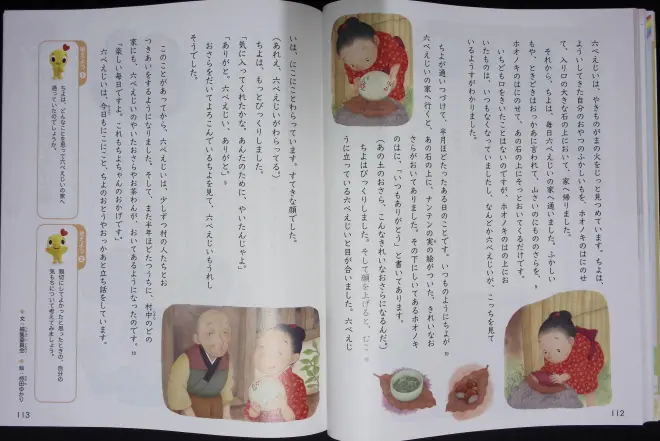 六べえじいは、やきものがまの火をじっと見つめています。ちよは、
ようい してきた自分のおやつのふかしいもを、ホオノキのはにのせ
て、入り口の大きな石の上において、家へ帰りました。
それから、ちよは、毎日六べえじいの家へ通いました。ふかしい
もや、ときどきはおっかあに言われて、山さいのにもののさらを、
ホオノキのはにのせて、あの石の上にそっとおいてくるだけです。
いちども口をきいたことはないのですが、ホオノキのはの上にお
いたものは、いつもなくなっていましたし、なんどか六べえじいが、こっちを見て
いるようすがわかりました。
ちよが通いつづけて、半月ほどたったある日のことです。いつものようにちよが
六べえじいの家へ行くと、あの石の上に、ナンテンの実の絵がついた、きれいなお
さらがおいてありました。その下にしいてあるホオノキ
のはに、「いつもありがとう」と書いてあります。
(あの土のおさら、こんなきれいなおさらになるんだ。)
ちよはびっくりしました。そして顔を上げると、むこ
うに立っている六べえじいと目が合いました。六べえじ
112
いは、にこにことわらっています。すてきな顔でした。
(あれえ、六べえじいがわらってる。)
ちよは、もっとびっくりしました。
「気に入ってくれたかな。あんたのために、やいたんじゃよ。」
「ありがと、六べえじい、ありがと。」
おさらをだいてよろこんでいるちよを見て、六べえじいもうれし
そうでした。
このことがあってから、六べえじいは、少しずつ村の人たちとお
つきあいをするようになりました。そして、また半年ほどたつうちに、村中のどの
家にも、六べえじいのやいたおさらやお茶わんが、おいてあるようになったのです。
「楽しい毎日ですよ。これもちよちゃんのおかげです。」
六べえじいは、今日もにこにこと、ちよのおとうやおっかあと立ち話をしています。
ちよは、どんなことを思って六べえじいの家へ
通っていたのでしょうか。
親切にしてよかったと思ったときの、自分の
気もちについて考えてみましょう。
113